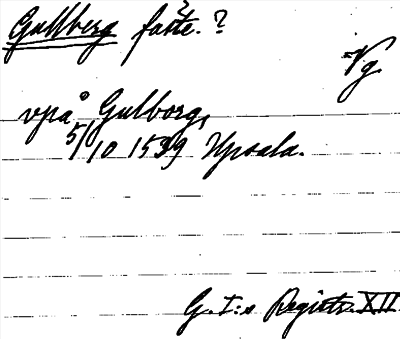 Gullberg fäste. ?
Vg
vpå Gulborg,
5/10 1539 Upsala.
G. I:s Registr. XII